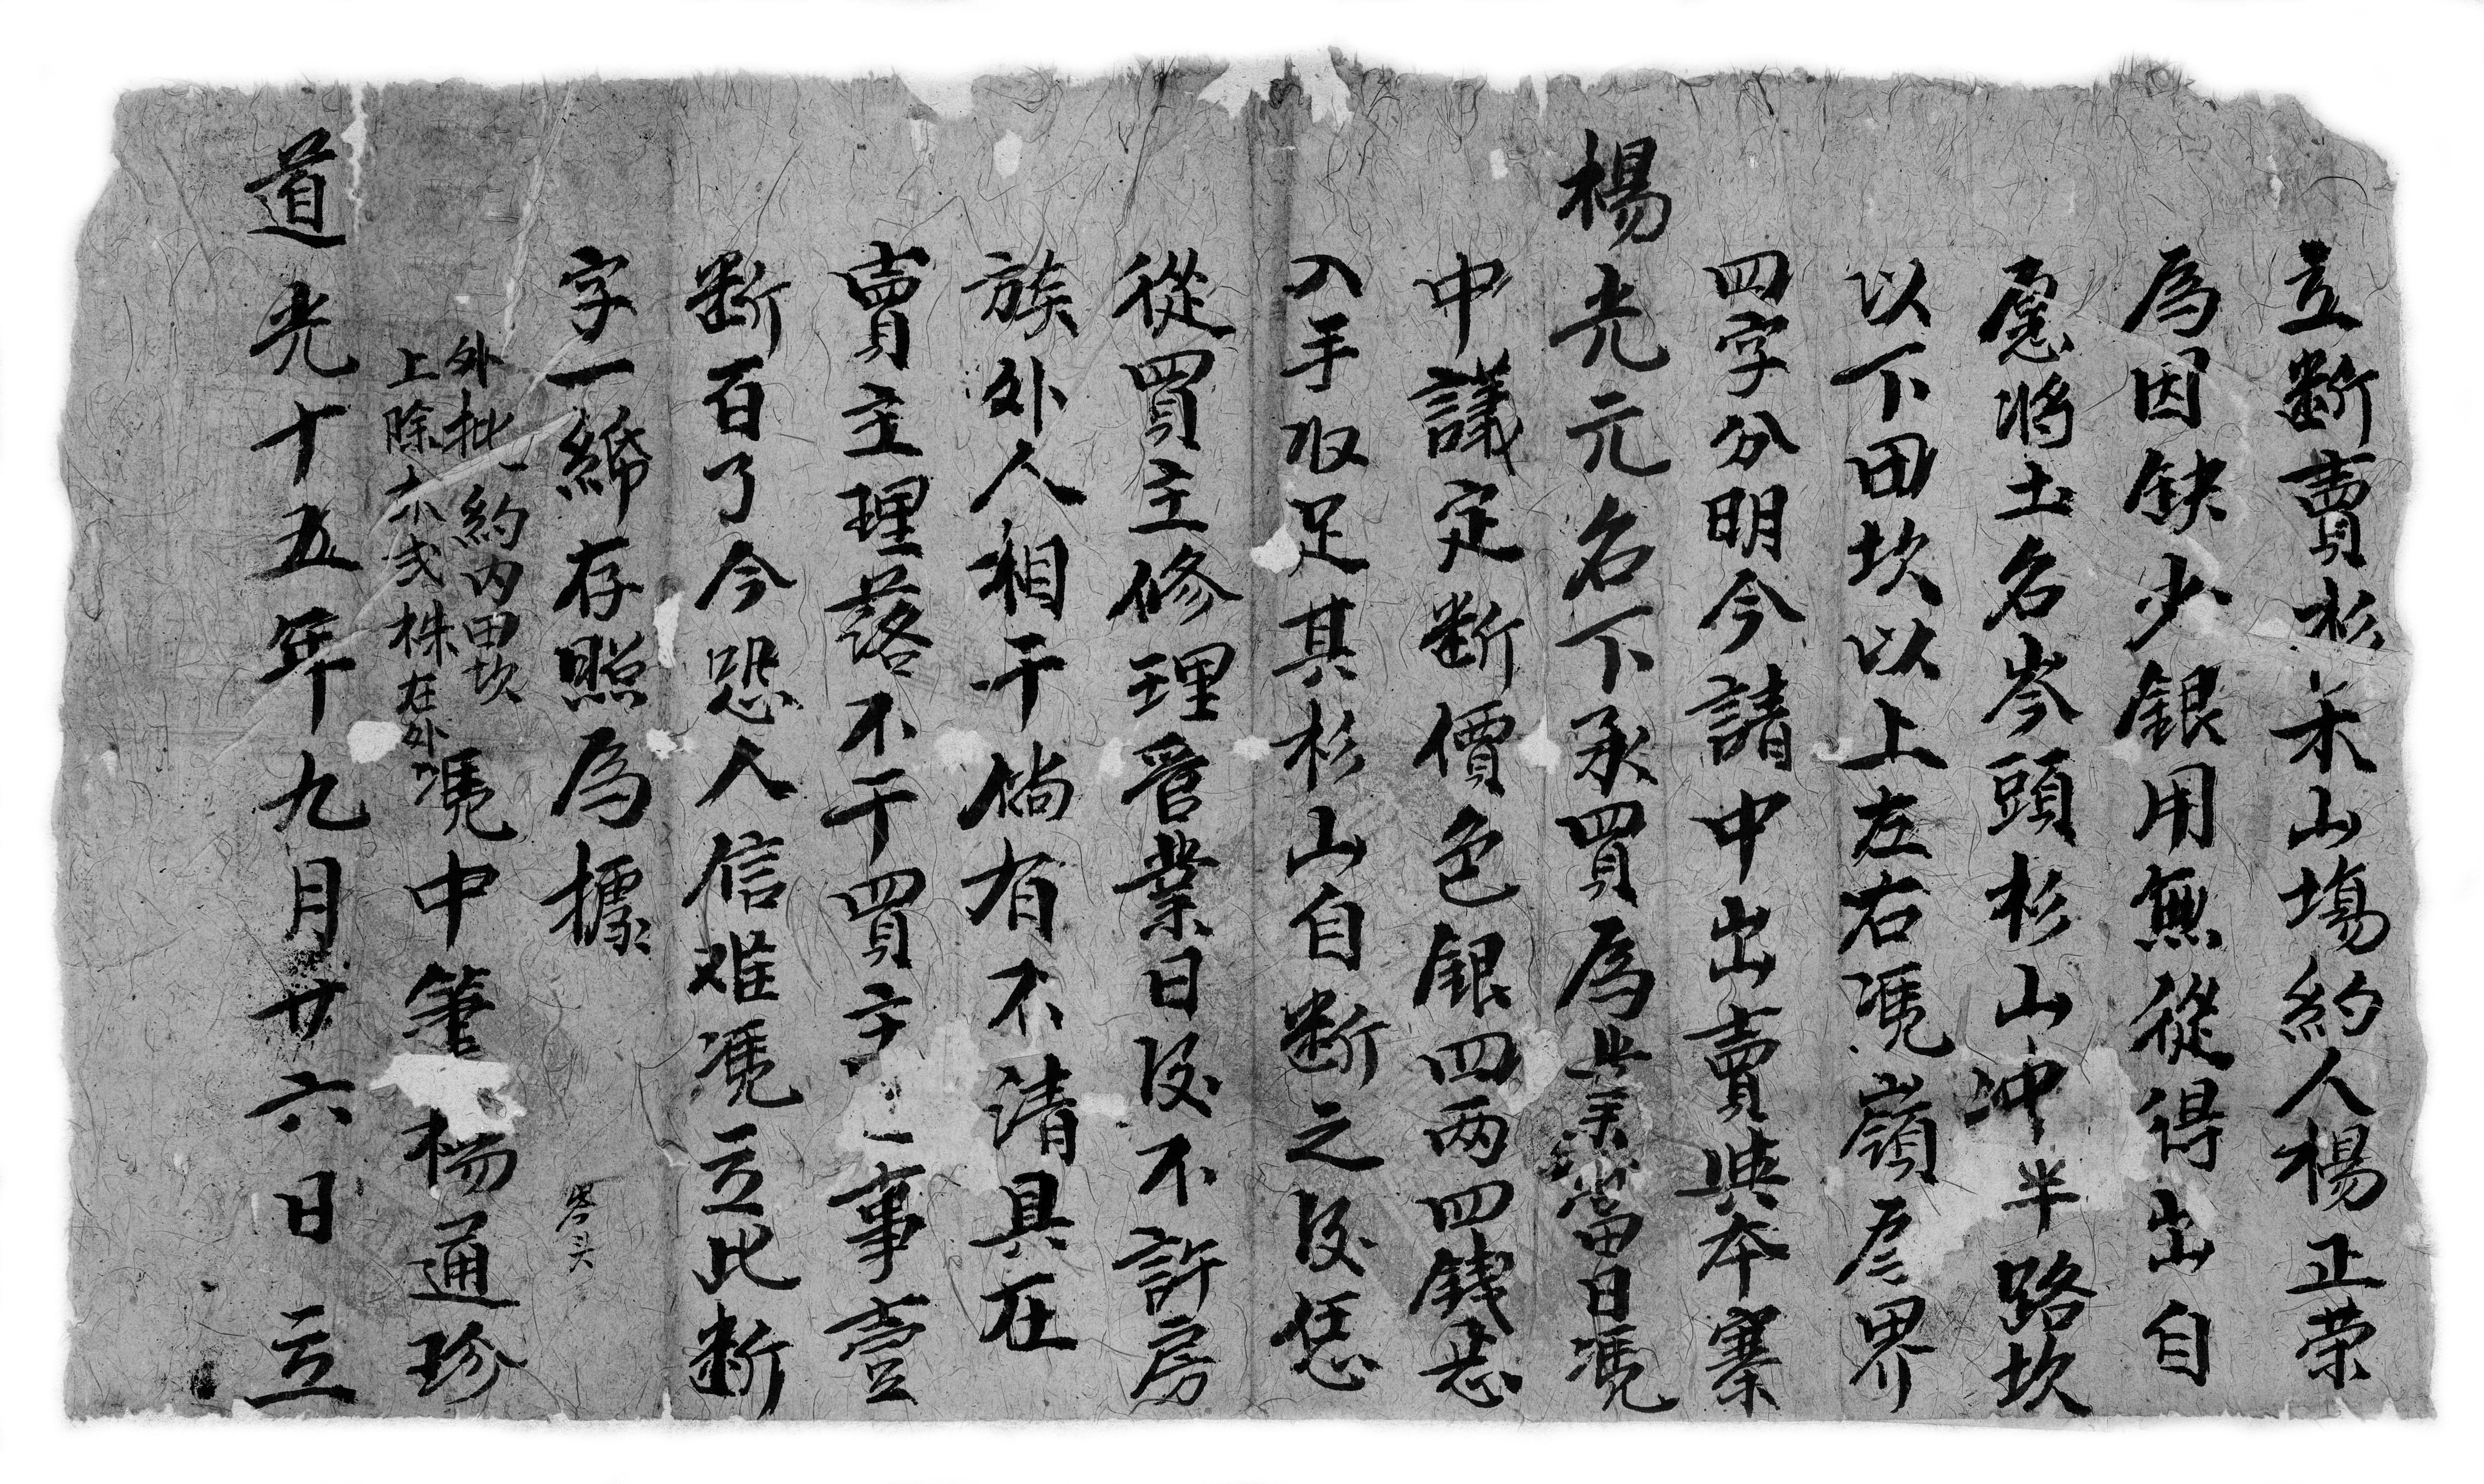 立断賣杉木山塲約人楊正荣
爲因缺少銀用無從得出自
愿將土名岑頭杉山冲半路坎
以下田坎以上左右凴嶺爲界
四字分明今請中出賣與本寨
楊光元名下承買爲業當日凴
中議定断價色銀四両四錢恙
入手收足其杉山自断之後恁
從買主修理管業日後不許房
族外人相干倘有不清具在
賣主理落不干買主一事壹
断百了今恐人信难凴立此断
字一綿存照爲據
岑头
外批一約内田坎
上除木弍株在外
凴中筆楊通珍
道光十五年九月廿六日立